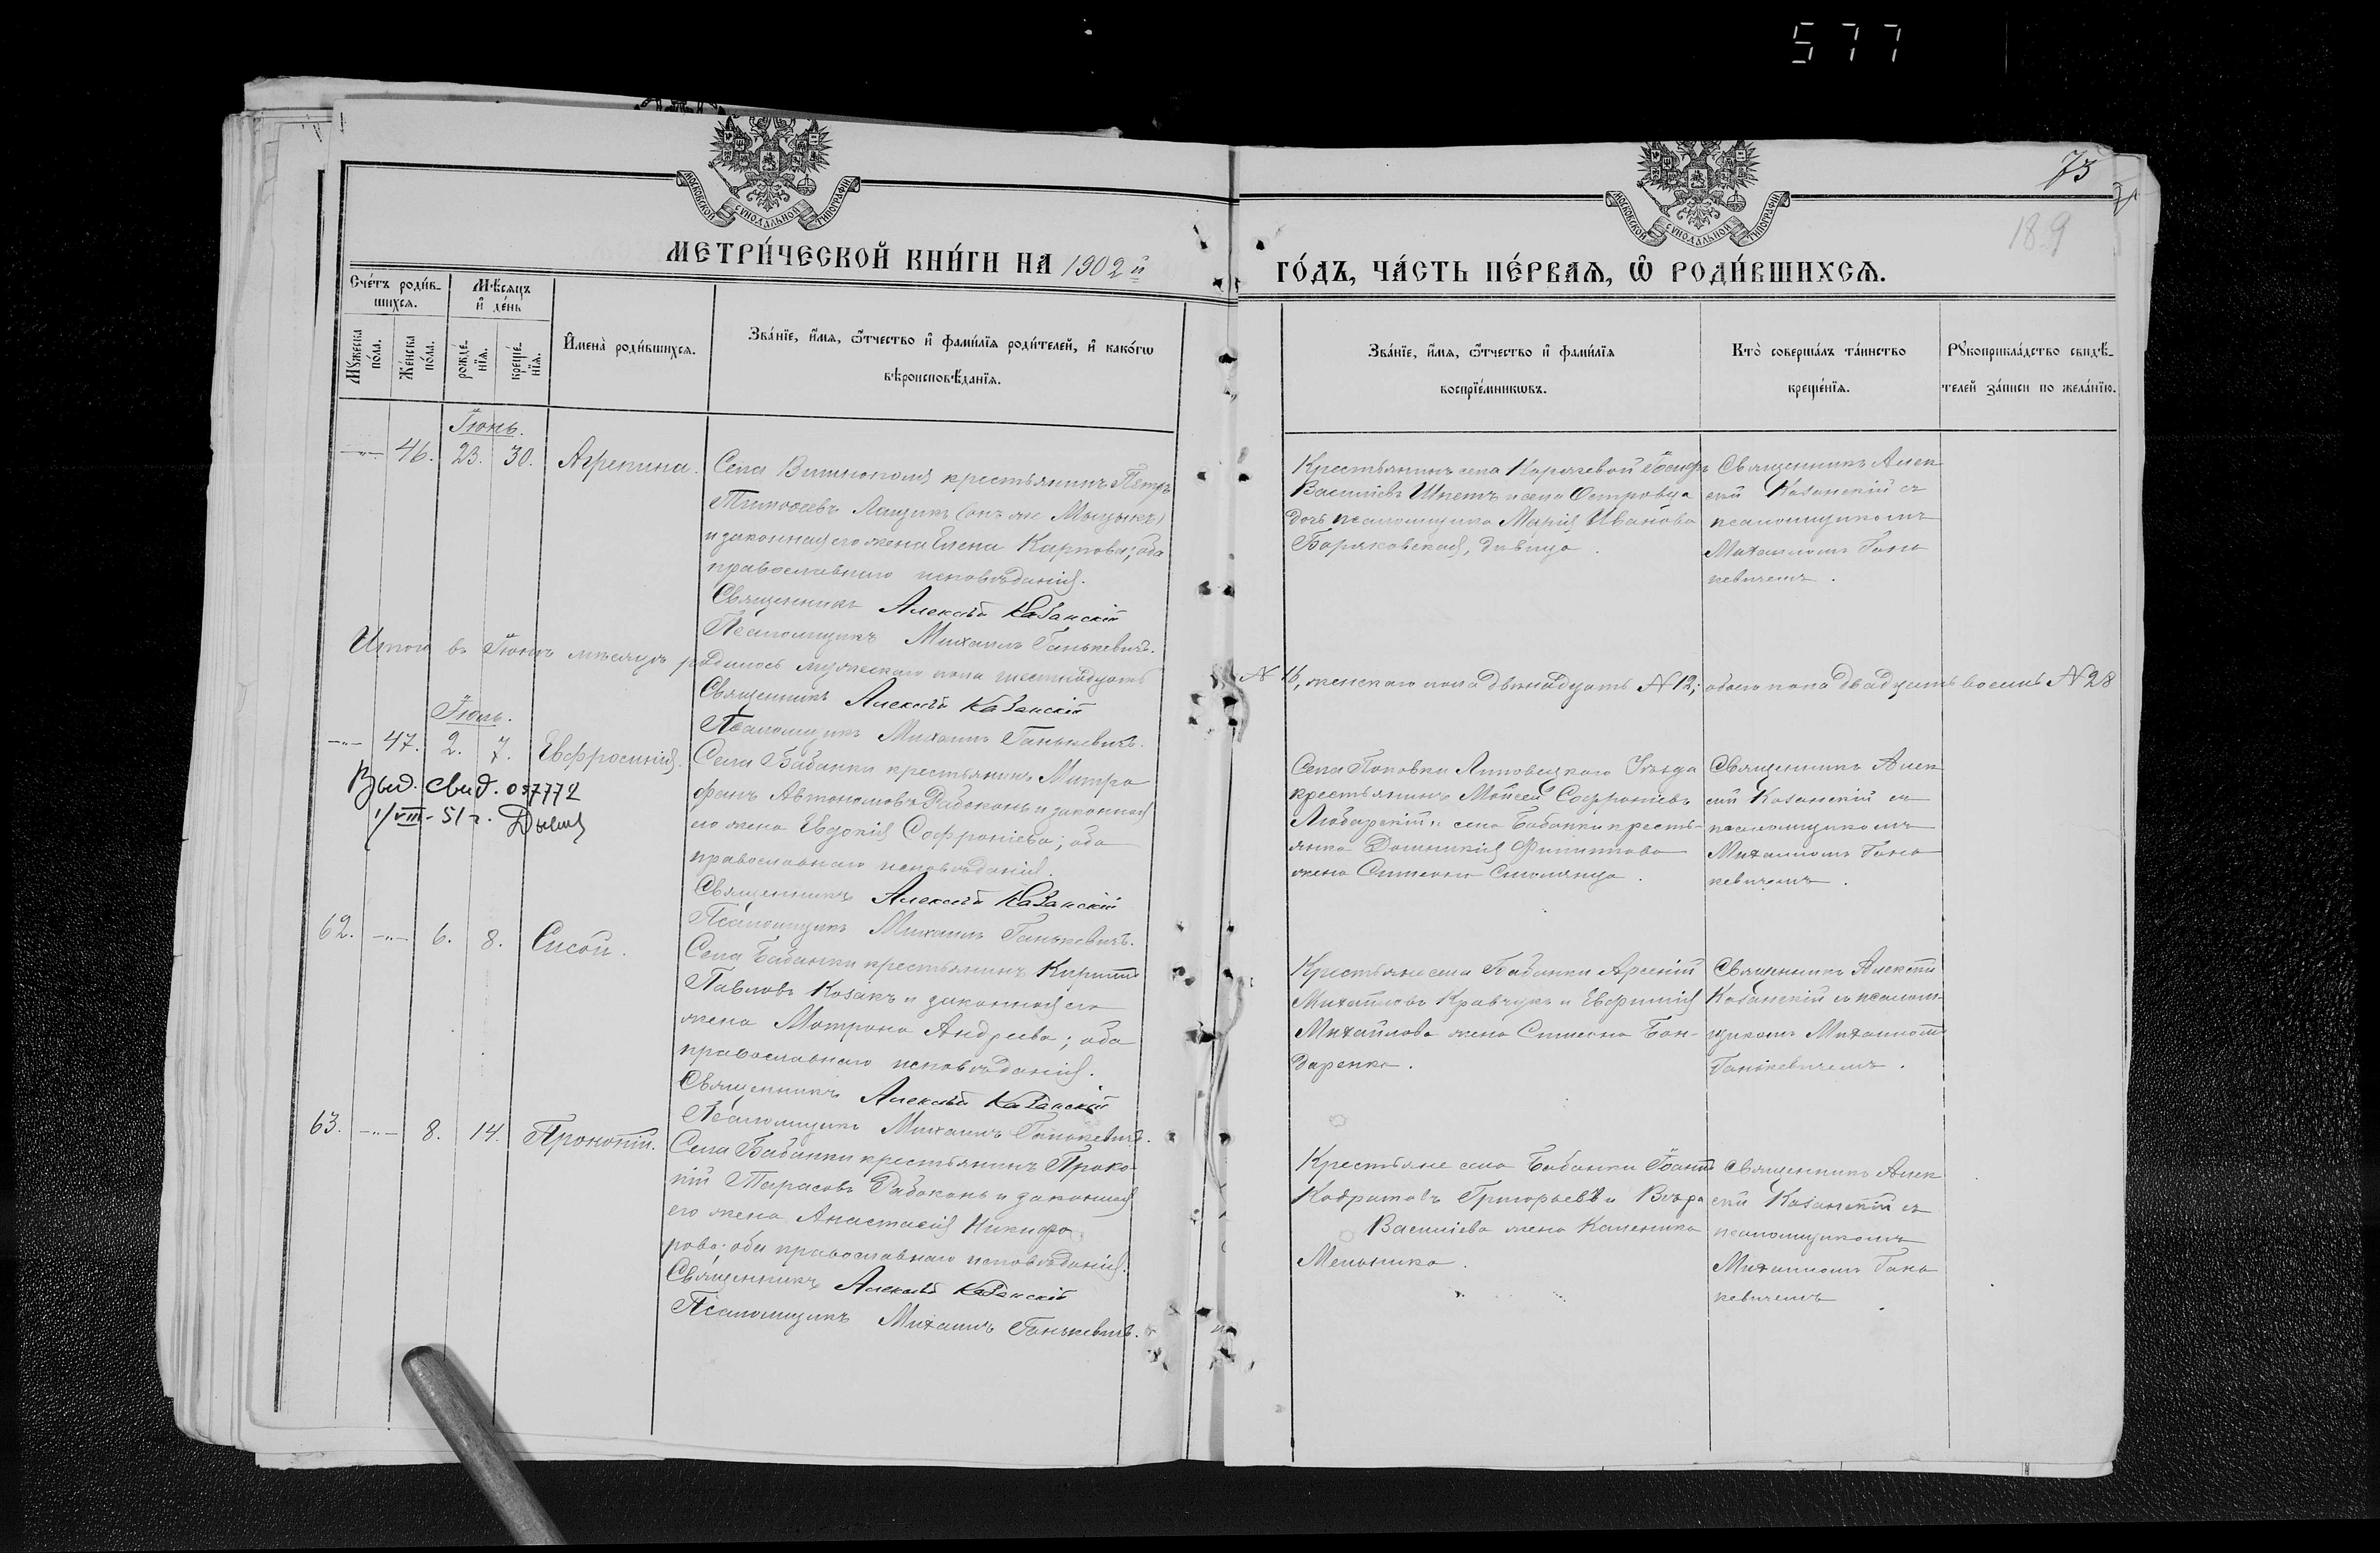 577
75
189
МОСКОВСКОЙ СѴНОДАЛЬНОЙ ТИПОГРАФІИ
МОСКОВСКОЙ СѴНОДАЛЬНОЙ ТИПОГРАФІИ
МЕТРИ́ЧЕСКОЙ КНИ́ГИ НА 1902й
ГО́ДЪ, ЧА́СТЬ ПЕ́РВАѦ, Ѡ҆ РОДИ́ВШИХСѦ.
Сче́тъ роди́в-
шихсѧ.
Мꙋ́жеска по́ла.
Же́нска по́ла.
Мѣ́сѧцъ и҆ де́нь
рожде́нїѧ.
креще́нїѧ.
И҆мена̀ роди́вшихсѧ.
Зва́нїе, и҆́мѧ, ѻ҆́тчество и҆ фами́лїѧ роди́телей, и҆ како́гѡ
вѣроисповѣ́данїѧ.
Зва́нїе, и҆́мѧ, ѻ҆́тчество и҆ фами́лїѧ
воспрїе́мникѡвъ.
Кто̀ соверша́лъ та́инство
креще́нїѧ.
Рꙋкоприкла́дство свидѣ́-
телей за́писи по жела́нїю.
Іюнь.
-"- 46. 23. 30. Агрепина.
Села Вишнополя крестьянинъ Петръ
Тимоѳеевъ Лащукъ (онъ же
и законная его жена Елена Карпова; оба
православнаго исповѣданія.
Священникъ Алексѣй Казанскій
Псаломщикъ Михаилъ Ганькевичъ.
Крестьянинъ села Іосифъ
Василіевъ Шпетъ и села Островца
дочь псаломщика Марія Иванова
дѣвица.
Священникъ Алек
сѣй Казанскій съ
псаломщикомъ
Михаиломъ Гань
кевичемъ.
Итого въ Іюнѣ мѣсяцѣ родилось мужескаго пола шестнадцать № 16, женскаго пола двѣнадцать № 12; обоего пола двадцать восемь № 28
Священникъ Алексѣй Казанскій
Псаломщикъ Михаилъ Ганькевичъ.
Іюль.
-"- 47. 2. 7. Евфросинія.
Выд. свид. 057772
1/VIII-51 г.
Села Бабанки крестьянинъ Митро
фанъ Автономовъ Рабоконь и законная
его жена Евдокія Софроніева; оба
православнаго исповѣданія.
Священникъ Алексѣй Казанскій
Псаломщикъ Михаилъ Ганькевичъ.
Села Поповки Липовецкаго Уѣзда
крестьянинъ Мойсей Софроніевъ
Любарскій и села Бабанки кресть-
янка Домникія Филиппова
жена Симеона Смолянца.
Священникъ Алек
сѣй Казанскій съ
псаломщикомъ
Михаиломъ Гань
кевичемъ.
62. -"- 6. 8. Сисой.
Села Бабанки крестьянинъ Кириллъ
Павловъ Козакъ и законная его
жена Матрона Андреева; оба
православнаго исповѣданія.
Священникъ Алексѣй Казанскій
Псаломщикъ Михаилъ Ганькевичъ.
Крестьяне села Бабанки Арсеній
Михайловъ Кравчукъ и Евфимія
Михайлова жена Симеона Бон-
даренка.
Священникъ Алексѣй
Казанскій съ псалом-
щикомъ Михаиломъ
Ганькевичемъ.
63. -"- 8. 14. Прокопій.
Села Бабанки крестьянинъ Проко-
пій Тарасовъ Рабоконь и законная
его жена Анастасія Никифо-
рова; оба православнаго исповѣданія.
Священникъ Алексѣй Казанскій
Псаломщикъ Михаилъ Ганькевичъ.
Крестьяне села Бабанки Іоаннъ
Кодратовъ Григорьевъ и Вѣра
Василіева жена Каленика
Мельника.
Священникъ Алек
сѣй Казанскій съ
псаломщикомъ
Михаиломъ Гань
кевичемъ